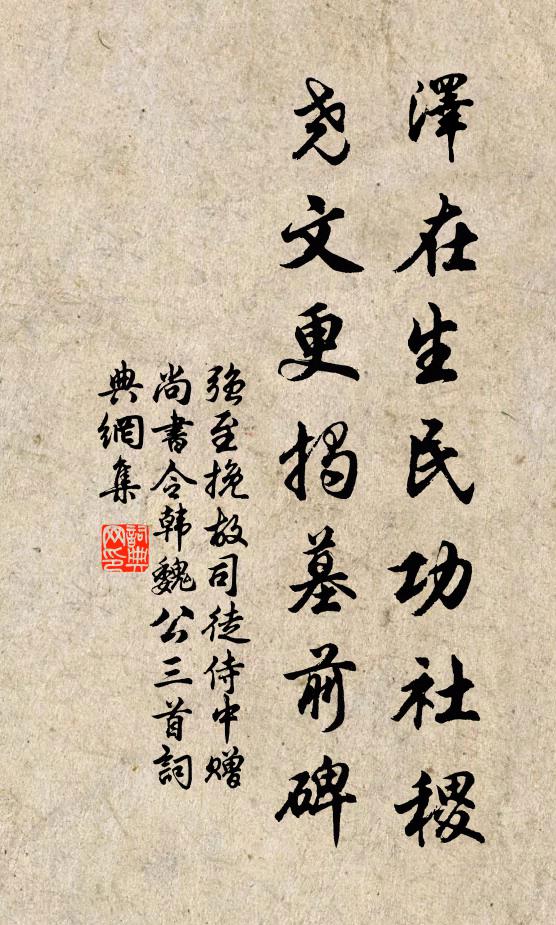 澤在生民功社稷
尧文更揭墓前碑
强至挽故司徒侍中赠
尚書令韩魏公三首詞
典網集
詞典网印